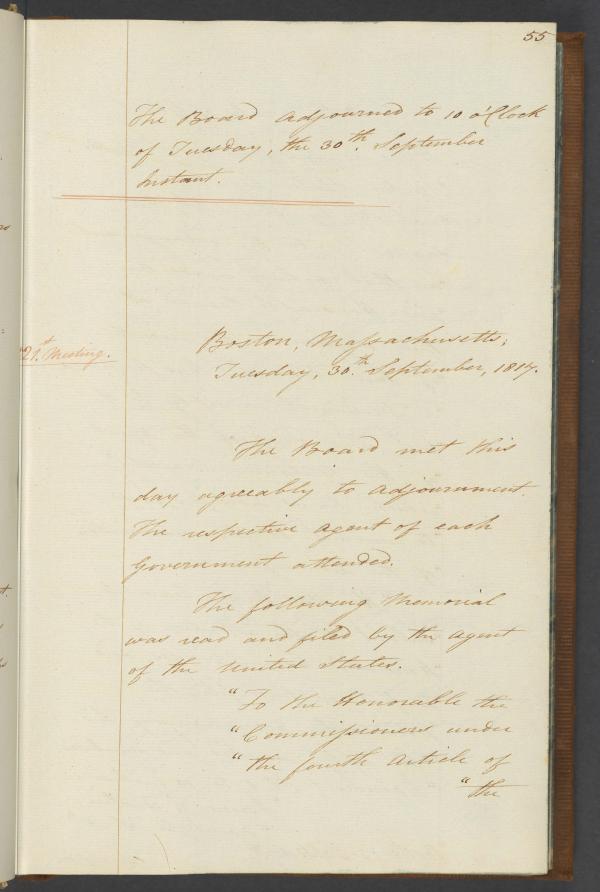 55
The Board adjourned to 10 o'Clock
of Tuesday, the 30th. September
Instant.
21st. Meeting.
Boston, Massachusetts,
Tuesday, 30th. September, 1817.
The Board met this
day agreeably to adjournment.
The respective agent of each
Government attended.
The following Memorial
was read and filed by the agent
of the United States.
"To the Honorable the
"Commissioners under
"the fourth Article of
"the